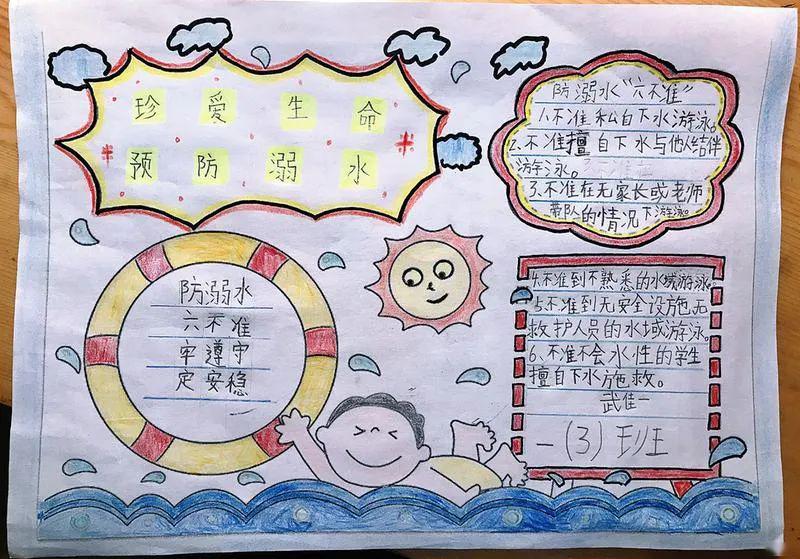 珍爱生命
预防溺水
防溺水“六不准”
1.不准私自下水游泳。
2.不准擅自下水与他人结伴
游泳。
3.不准在无家长或老师
带队的情况下游泳。
防溺水
六不准
牢遵守
定安稳
4.不准到不熟悉的水域游泳。
5.不准到无安全设施无
救护人员的水域游泳。
6、不准不会水性的学生
擅自下水施救。
武佳一
一(3)班